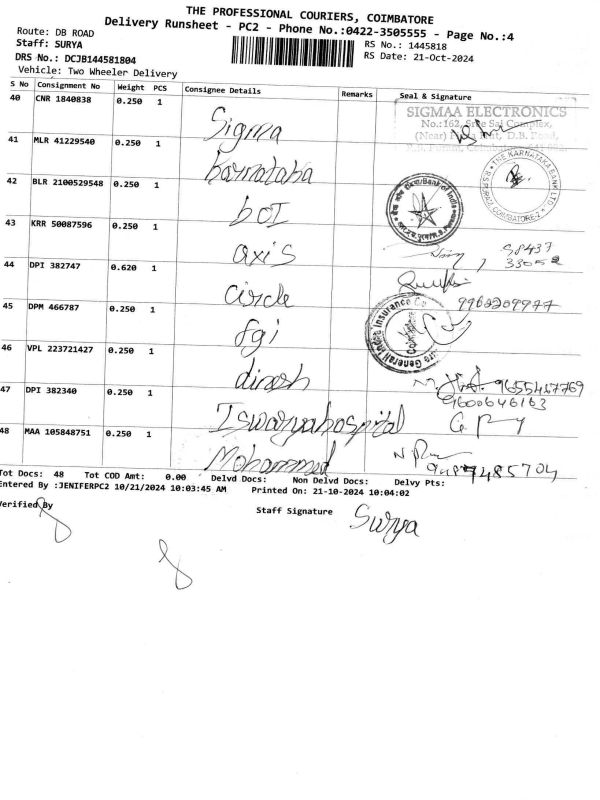 THE PROFESSIONAL COURIERS, COIMBATORE
Delivery Runsheet - PC2 - Phone No.:0422-3505555 - Page No.:4
Route: DB ROAD
Staff: SURYA
RS No.: 1445818
DRS No.: DCJB144581804
RS Date: 21-Oct-2024
Vehicle: Two Wheeler Delivery
S No Consignment No Weight PCS Consignee Details Remarks Seal & Signature
40 CNR 1840838 0.250 1 Sigma
SIGMAA ELECTRONICS
No.:162, Sree Sai Complex,
(Near) D.B. Road,
41 MLR 41229540 0.250 1 Karnataka
THE KARNATAKA BANK LTD
R.S. PURAM, COIMBATORE-2
42 BLR 2100529548 0.250 1 boI
Bank of India
43 KRR 50087596 0.250 1 axis
98437
33052
44 DPI 382747 0.620 1 circle
9962209977
45 DPM 466787 0.250 1 fgi
Generali India Insurance Co
Coimbatore
46 VPL 223721427 0.250 1 dinesh
9655457769
47 DPI 382340 0.250 1 Iswaryahospital
9600646163
48 MAA 105848751 0.250 1 Mohammed
Tot Docs: 48 Tot COD Amt: 0.00 Delvd Docs: Non Delvd Docs: Delvy Pts:
Entered By :JENIFERPC2 10/21/2024 10:03:45 AM Printed On: 21-10-2024 10:04:02
Verified By
Staff Signature Surya